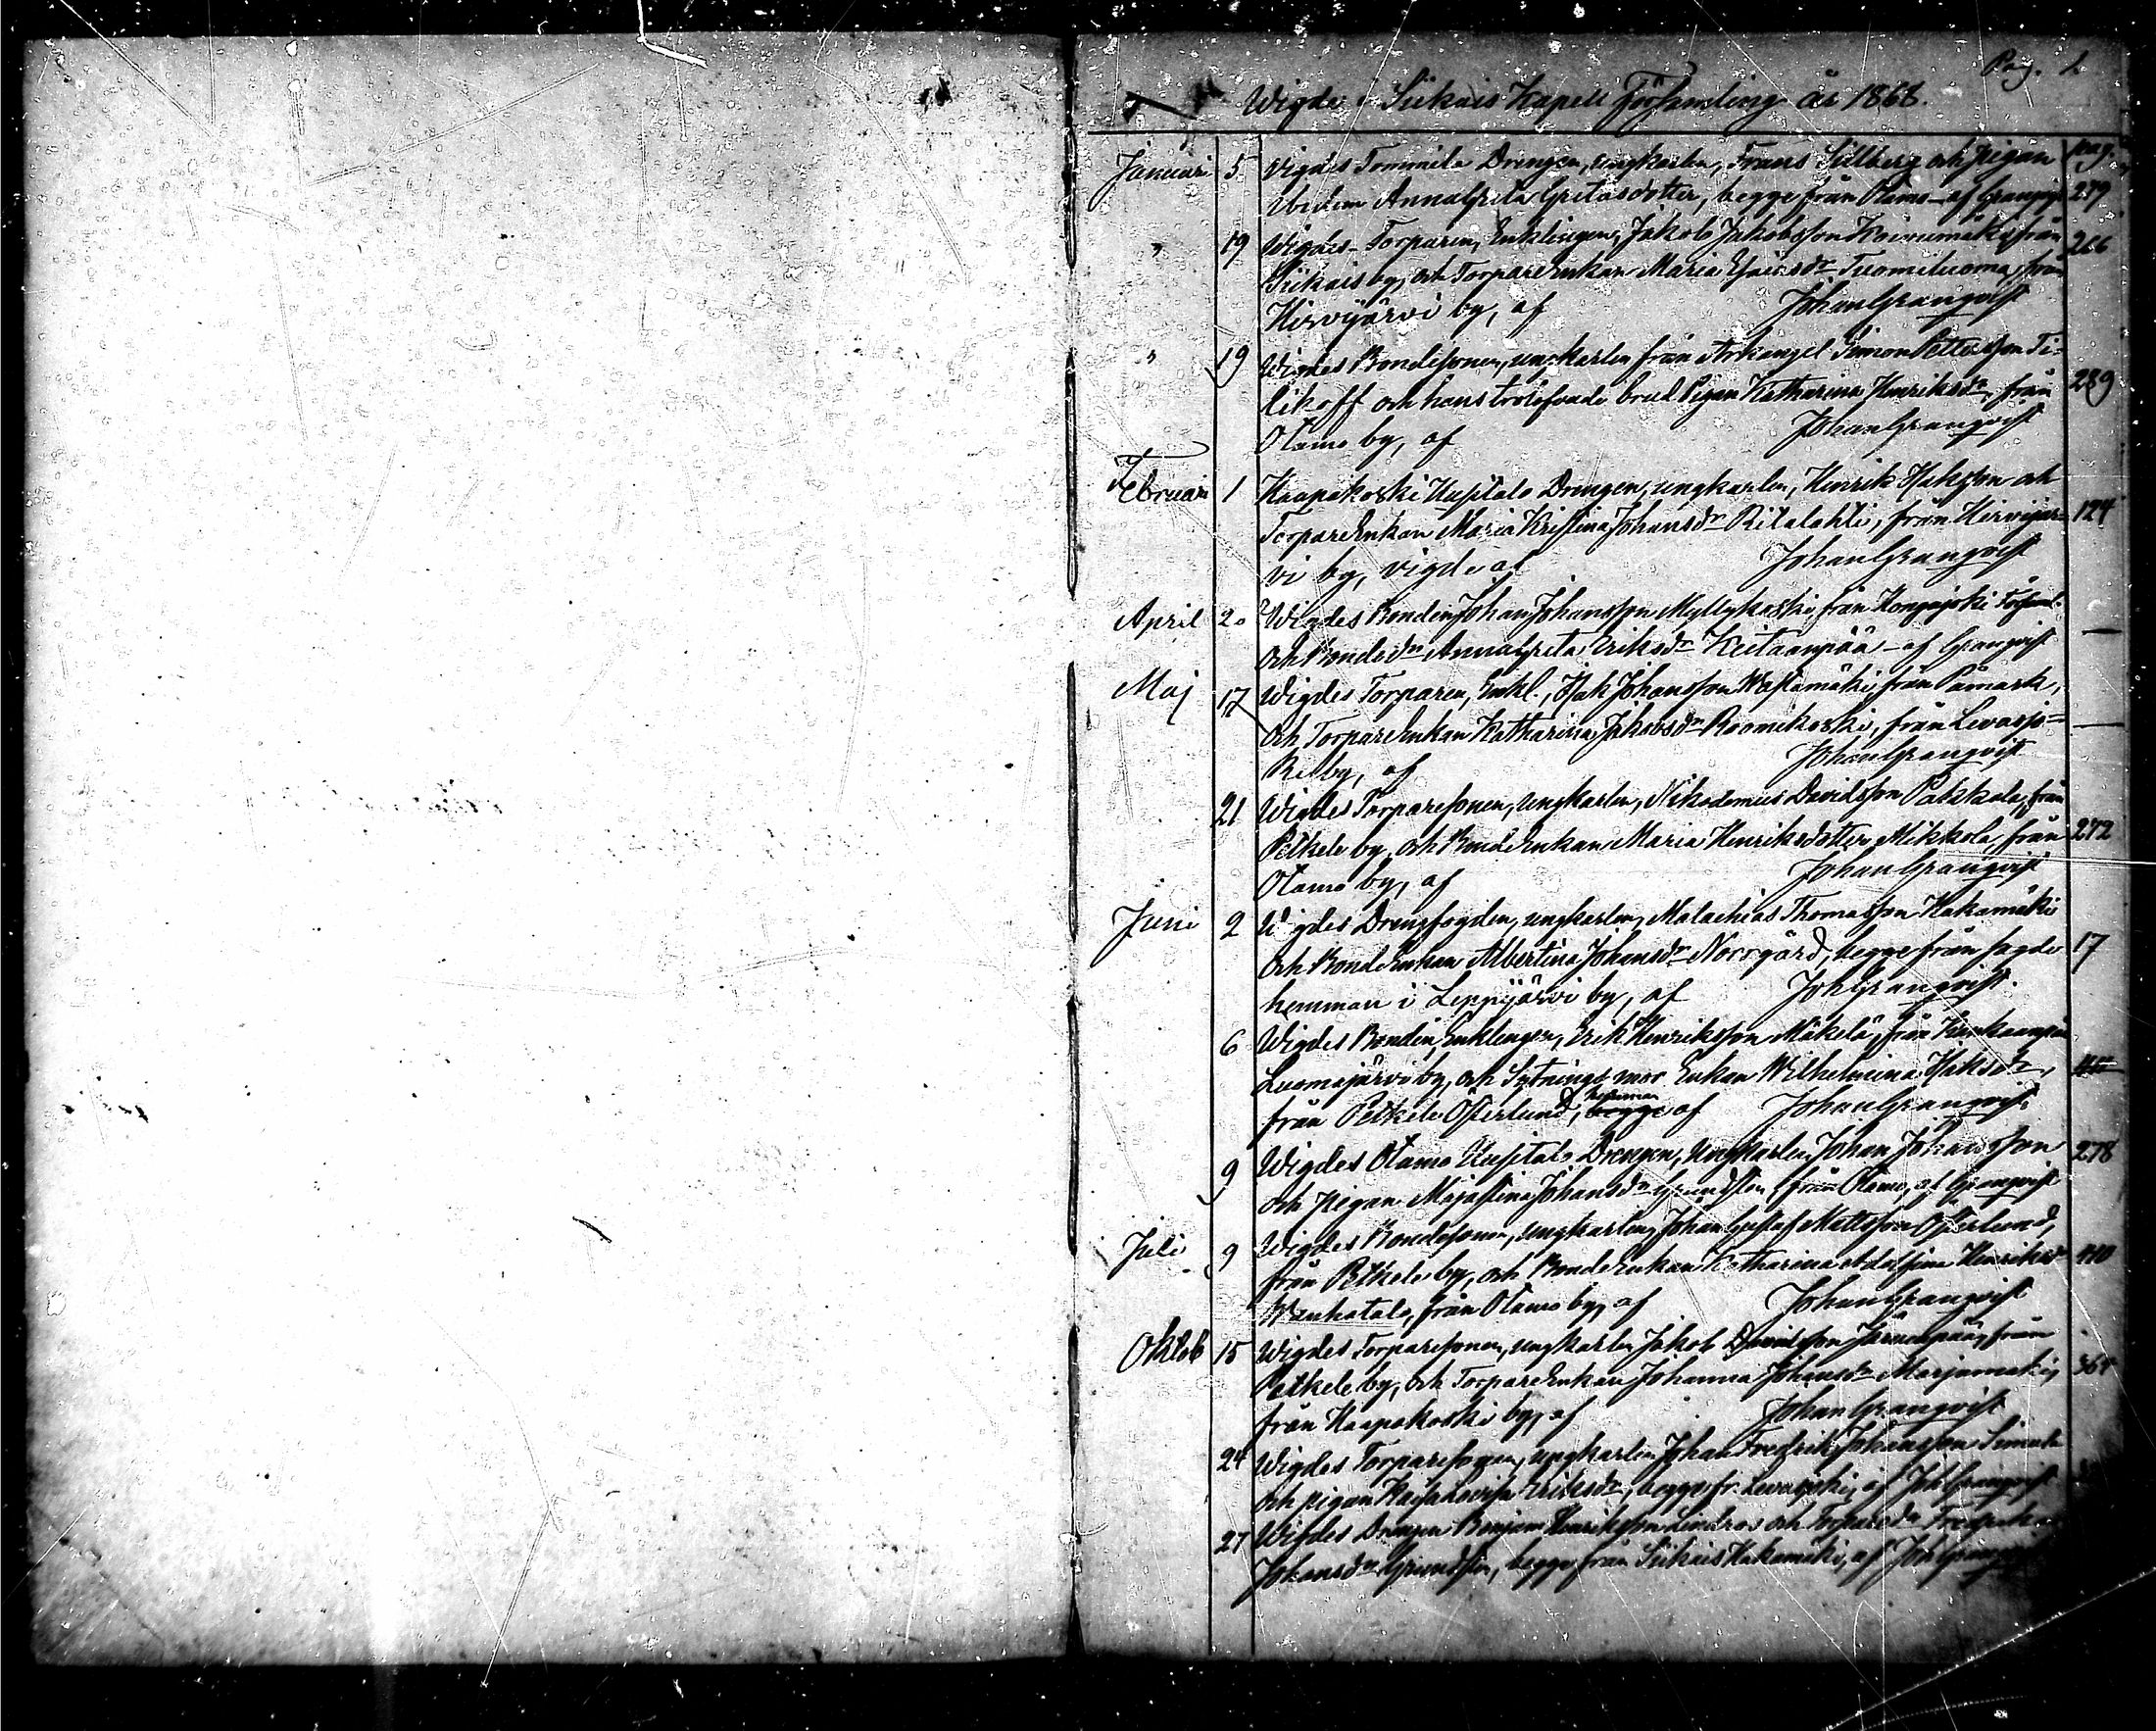 Pag. 1.
Wigde i Siikais Kapell Församling år 1868.
pag.
Januari 5 Vigdes Tommila Drengen, ungkarlen, Frans Sillberg och pigan
ibidem Anna Greta Gretasdotter, begge från Otamo – af Granqvist 279
" 19 Wigdes Torparen, Enklingen, Jakob Jakobsson Koivumäki från 266
Siikais by, och Torpare Enkan Maria Esaiasdr Tuomiluoma, från
Hirvijärvi by, af Johan Granqvist
" 19 Wigdes Bondesonen, ungkarlen från Arkangel Simon Pettersson Ti-
likoff och hans trolofvade brud Pigan Katharina Henriksdr, från 289
Otamo by, af Johan Granqvist
Februari 1 Kaapakoski Uusitalo Drengen, ungkarlen, Henrik Isaksson och
Torpare Enkan Maria Kristina Johansdr Ritalahti, från Hirvijär- 124
vi by, vigde af Johan Granqvist
April 20 Wigdes Bonden Johan Johansson Myllykoski från Hongojoki Församl.
och Bondedr Anna Greta Eriksdr Keitaanpää – af Granqvist —
Maj 17 Wigdes Torparen, Enkl., Isak Johansson Wastamäki, från Påmark,
och Torpare Enkan Katharina Jakobsdr Roomikoski, från Levasjo- —
ki by, af Johan Granqvist
21 Wigdes Torparesonen, ungkarlen, Nikodemus Davidsson Pakkala, från
Petkele by, och Bonde Enkan Maria Henriksdotter Mikkola, från 272
Otamo by, af Johan Granqvist
Juni 2 Wigdes Drengfogden, ungkarlen, Malachias Thomasson Hakamäki
och Bonde Enkan Albertina Johansdr Norrgård, begge från sagde 17
hemman i Leppijärvi by, af Joh Granqvist.
6 Wigdes Bonden, Enklingen, Erik Henriksson Mäkelä, från Kankaanpää
Luomajärvi by, och Sytnings mor Enkan Wilhelmina Isaksdr,
från Petkele Österlund, begge hemman af Johan Granqvist
9 Wigdes Otamo Uusitalo Drengen, Ungkarlen Johan Johansson 278
och pigan Maja Stina Johansdr Grundsten från Otamo, af Granqvist
Juli 9 Wigdes Bondesonen, ungkarlen, Johan Gustaf Mattsson Österlund,
från Petkele by, och Bonde Enkan Katharina Adolfina Henriksdr 410
Wanhatalo, från Otamo by, af Johan Granqvist
Oktob 15 Wigdes Torparesonen, ungkarlen Jakob Davidsson Järvenpää, från
Petkele by, och Torpare Enkan Johanna Johansdr Marjamäki, 364
från Kaapakoski by, af Johan Granqvist
24 Wigdes Torparesonen, ungkarlen Johan Fredrik Johansson Simula
och pigan Kajsa Lovisa Eriksdr, begge fr. Levasjoki, af Joh Granqvist
27 Wigdes Drengen Benjam Henriksson Lindros och Torparedr Fredrika
Johansdr Grundsten, begge från Siikais Hakamäki, af Joh Granqvist